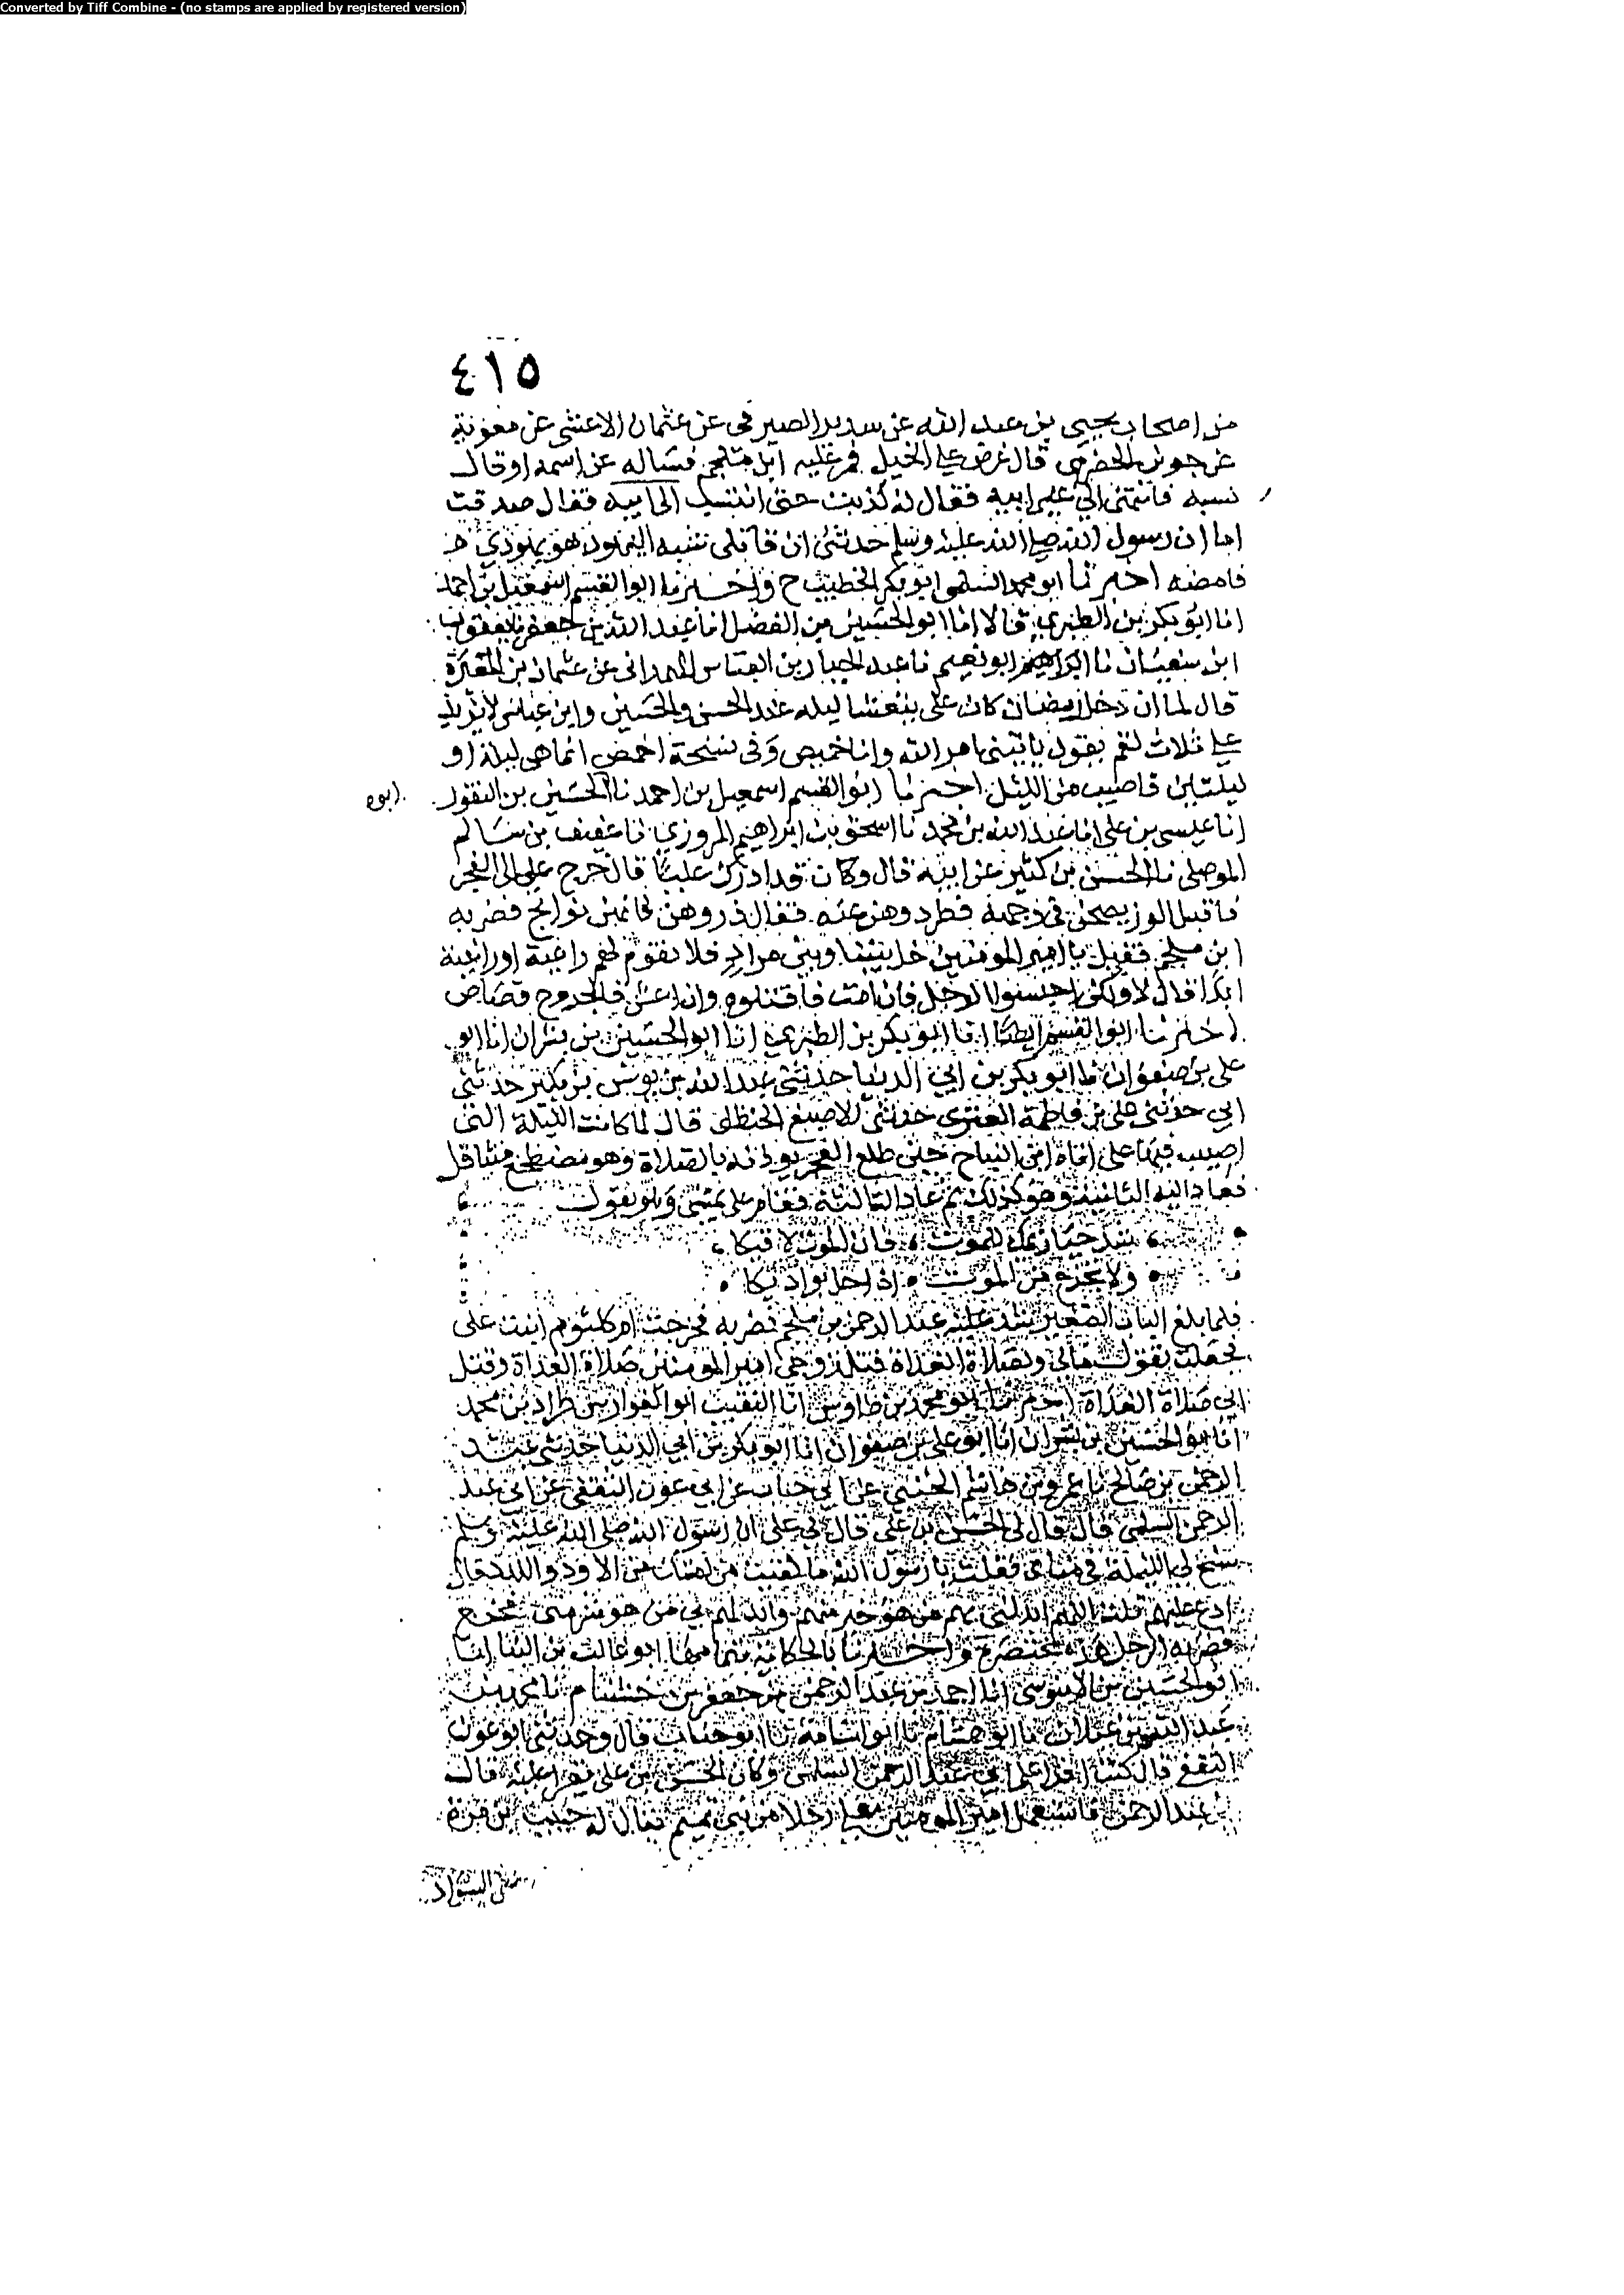 Converted by Tiff Combine - (no stamps are applied by registered version)
٤١٥
من اصحاب يحيى بن عبد الله عن سدير الصيرفى عن عثمان الاعشى عن معوية
عن جوين الحضرمى قال عرض على الخيل فمر عليه ابن ملجم فساله عن اسمه او قال
نسبه فانتمى الى غير ابيه فقال له كذبت حتى انتسب الى ابيه فقال صدقت
اما ان رسول الله صلى الله عليه وسلم حدثنى ان قاتلى شبه اليهود هو يهودي
فامضه اخبرنا ابو محمد السلمى ابو بكر الخطيب ح واخبرنا ابو القسم اسمعيل بن احمد
انا ابو بكر بن الطبري قالا انا ابو الحسين بن الفضل انا عبد الله بن جعفر نا يعقوب
ابن سفيان نا ابو نعيم نا عبد الجبار بن العباس الهمدانى عن عثمان بن المغيرة
قال لما ان دخل رمضان كان على يتعشا ليله عند الحسن والحسين وابن عباس لا يزيد
على ثلاث لقم يقول ياتينى امر الله وانا خميص وفى نسخة اخمص انما هى ليلة او
ليلتين فاصيب من الليل اخبرنا ابو القسم اسمعيل بن احمد نا الحسين بن النقور
ابوه
انا عيسى بن على انا عبد الله بن محمد نا اسحق بن ابراهيم المروزي نا عفيف بن سالم
الموصلى نا الحسن بن كثير عن ابيه قال وكان قد ادرك عليا قال خرج على الى الفجر
فاقبل الوز يصحن فى وجهه فطردوهن عنه فقال ذروهن فانهن نوايح فضربه
ابن ملجم فقيل يا امير المومنين خل بيننا وبين مراد فلا تقوم لهم راغية او راغية
ابدا قال لا ولكن احبسوا الرجل فان امت فاقتلوه وان اعش فالجروح قصاص
اخبرنا ابو القسم ايضا انا ابو بكر بن الطبري انا ابو الحسين بن بشران انا ابو
على بن صفوان نا ابو بكر بن ابي الدنيا حدثنى عبد الله بن يونس بن بكير حدثنى
ابي حدثنى على بن فاطمة العنزى حدثنى الاصبغ الحنظلى قال لما كانت الليلة التى
اصيب فيها على اتاه ابن النباح حين طلع الفجر يوذنه بالصلاة وهو مضطجع متثاقل
فعاد اليه الثانية وهو كذلك ثم عاد الثالثة فقام على يمشى وهو يقول
شد حيازيمك للموت فان الموت لاقيكا
ولا تجزع من الموت اذا حل بواديكا
فلما بلغ الباب الصغير شد عليه عبد الرحمن بن ملجم فضربه فخرجت ام كلثوم ابنت على
فجعلت تقول مالى ولصلاة الغداة قتل زوجى امير المومنين صلاة الغداة وقتل
ابى صلاة الغداة اخبرنا ابو محمد بن طاوس انا النقيب ابو الفوارس طراد بن محمد
انا ابو الحسين بن بشران انا ابو على بن صفوان انا ابو بكر بن ابي الدنيا حدثنى عبد
الرحمن بن صالح نا عمرو بن هاشم الجنبى عن ابي جناب عن ابى عون الثقفى عن ابى عبد
الرحمن السلمى قال قال لى الحسن بن على قال لى على ان رسول الله صلى الله عليه وسلم
سنح لى الليلة فى منامى فقلت يا رسول الله ما لقيت من امتك من الاود واللدد قال
ادع عليهم قلت اللهم ابدلنى بهم من هو خير منهم وابدلهم بى من هو شر منى فخرج
فضربه الرجل هذه مختصرة واخبرنا بالحكاية بتمامها ابو غالب بن البنا انا
ابو الحسين بن الابنوسى انا احمد بن عبد الرحمن بن جعفر بن خشنام نا
عبد نا ابو هشام نا ابو اسامة نا ابو جناب قال وحدثنى ابو عون
الثقفى قال كنت اقرا على ابى عبد الرحمن السلمى وكان الحسن بن على يقرا عليه قال
عبد الرحمن فاستعمل امير المومنين على رجلا من بنى تميم يقال له حبيب بن قرة
على السواد